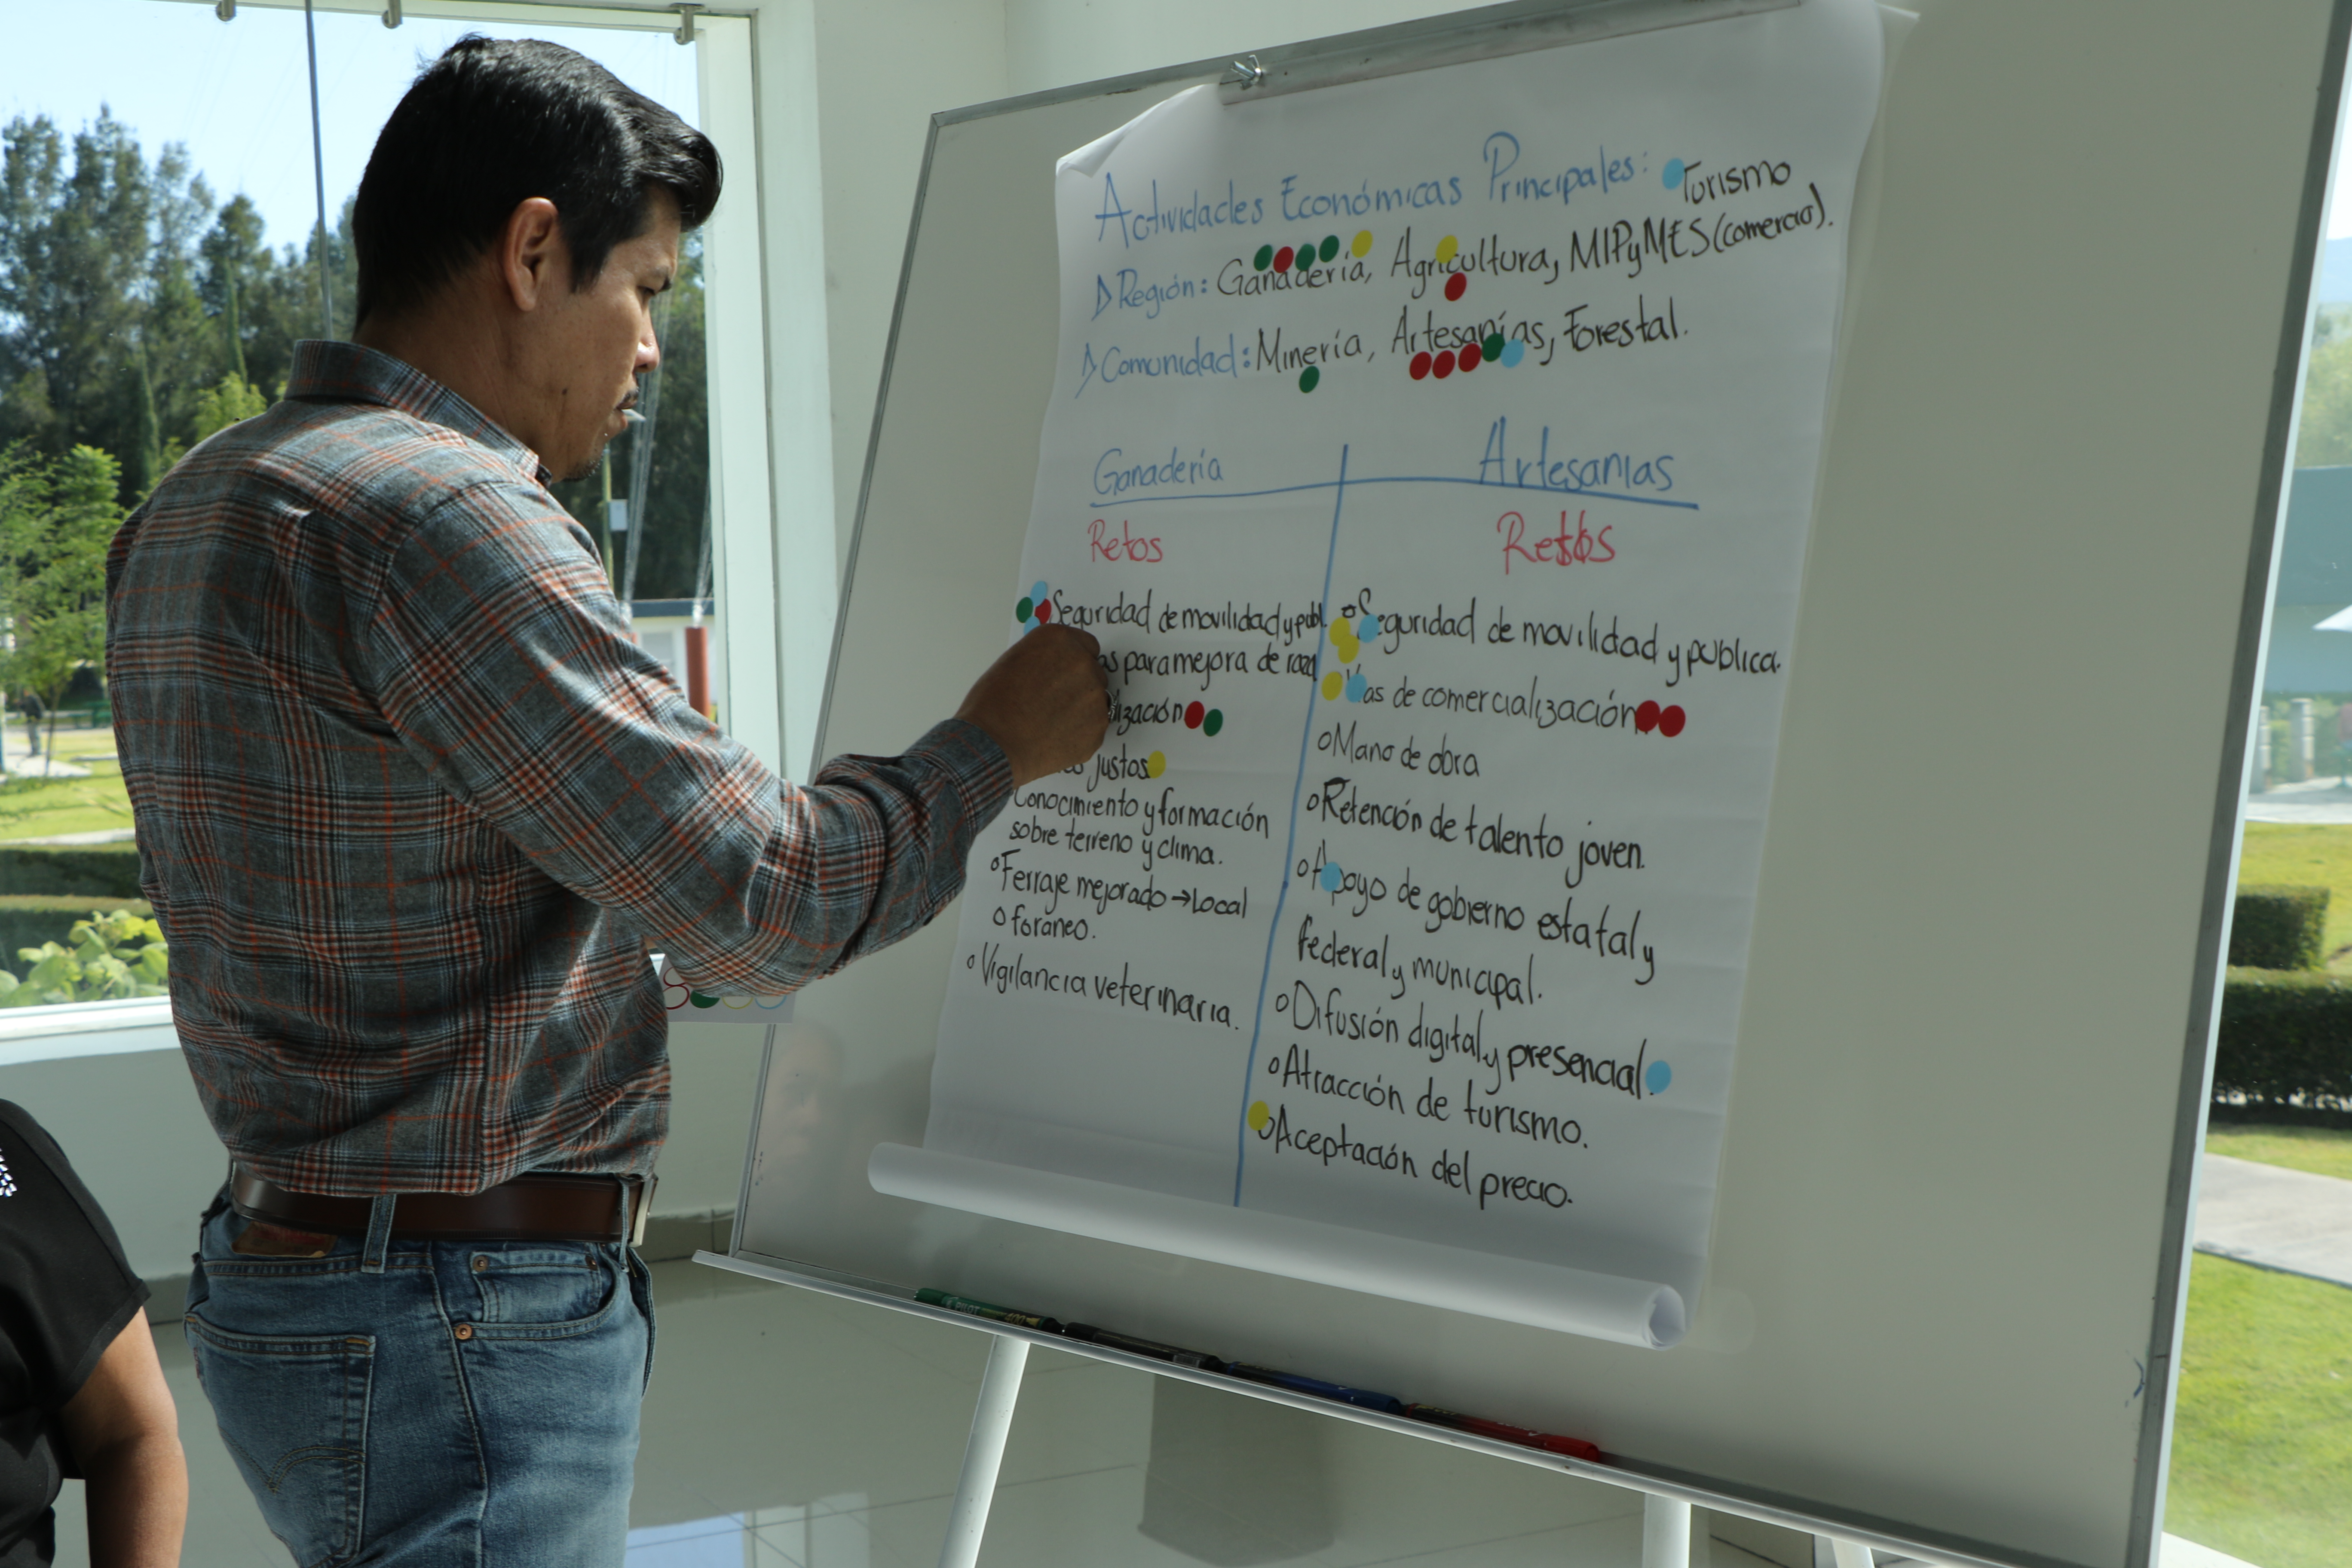 Actividades Económicas Principales: Turismo
Región: Ganadería, Agricultura, MIPyMES (comercio).
Comunidad: Minería, Artesanías, Forestal.
Ganadería
Retos
Seguridad de movilidad y publ.
para mejora de raza
justos
Conocimiento y formación
sobre terreno y clima.
Ferraje mejorado → Local
o foráneo.
Vigilancia veterinaria.
Artesanias
Retos
Seguridad de movilidad y pública.
Vías de comercialización
Mano de obra
Retención de talento joven.
Apoyo de gobierno estatal y
federal y municipal.
Difusión digital y presencial.
Atracción de turismo.
Aceptación del precio.
PILOT